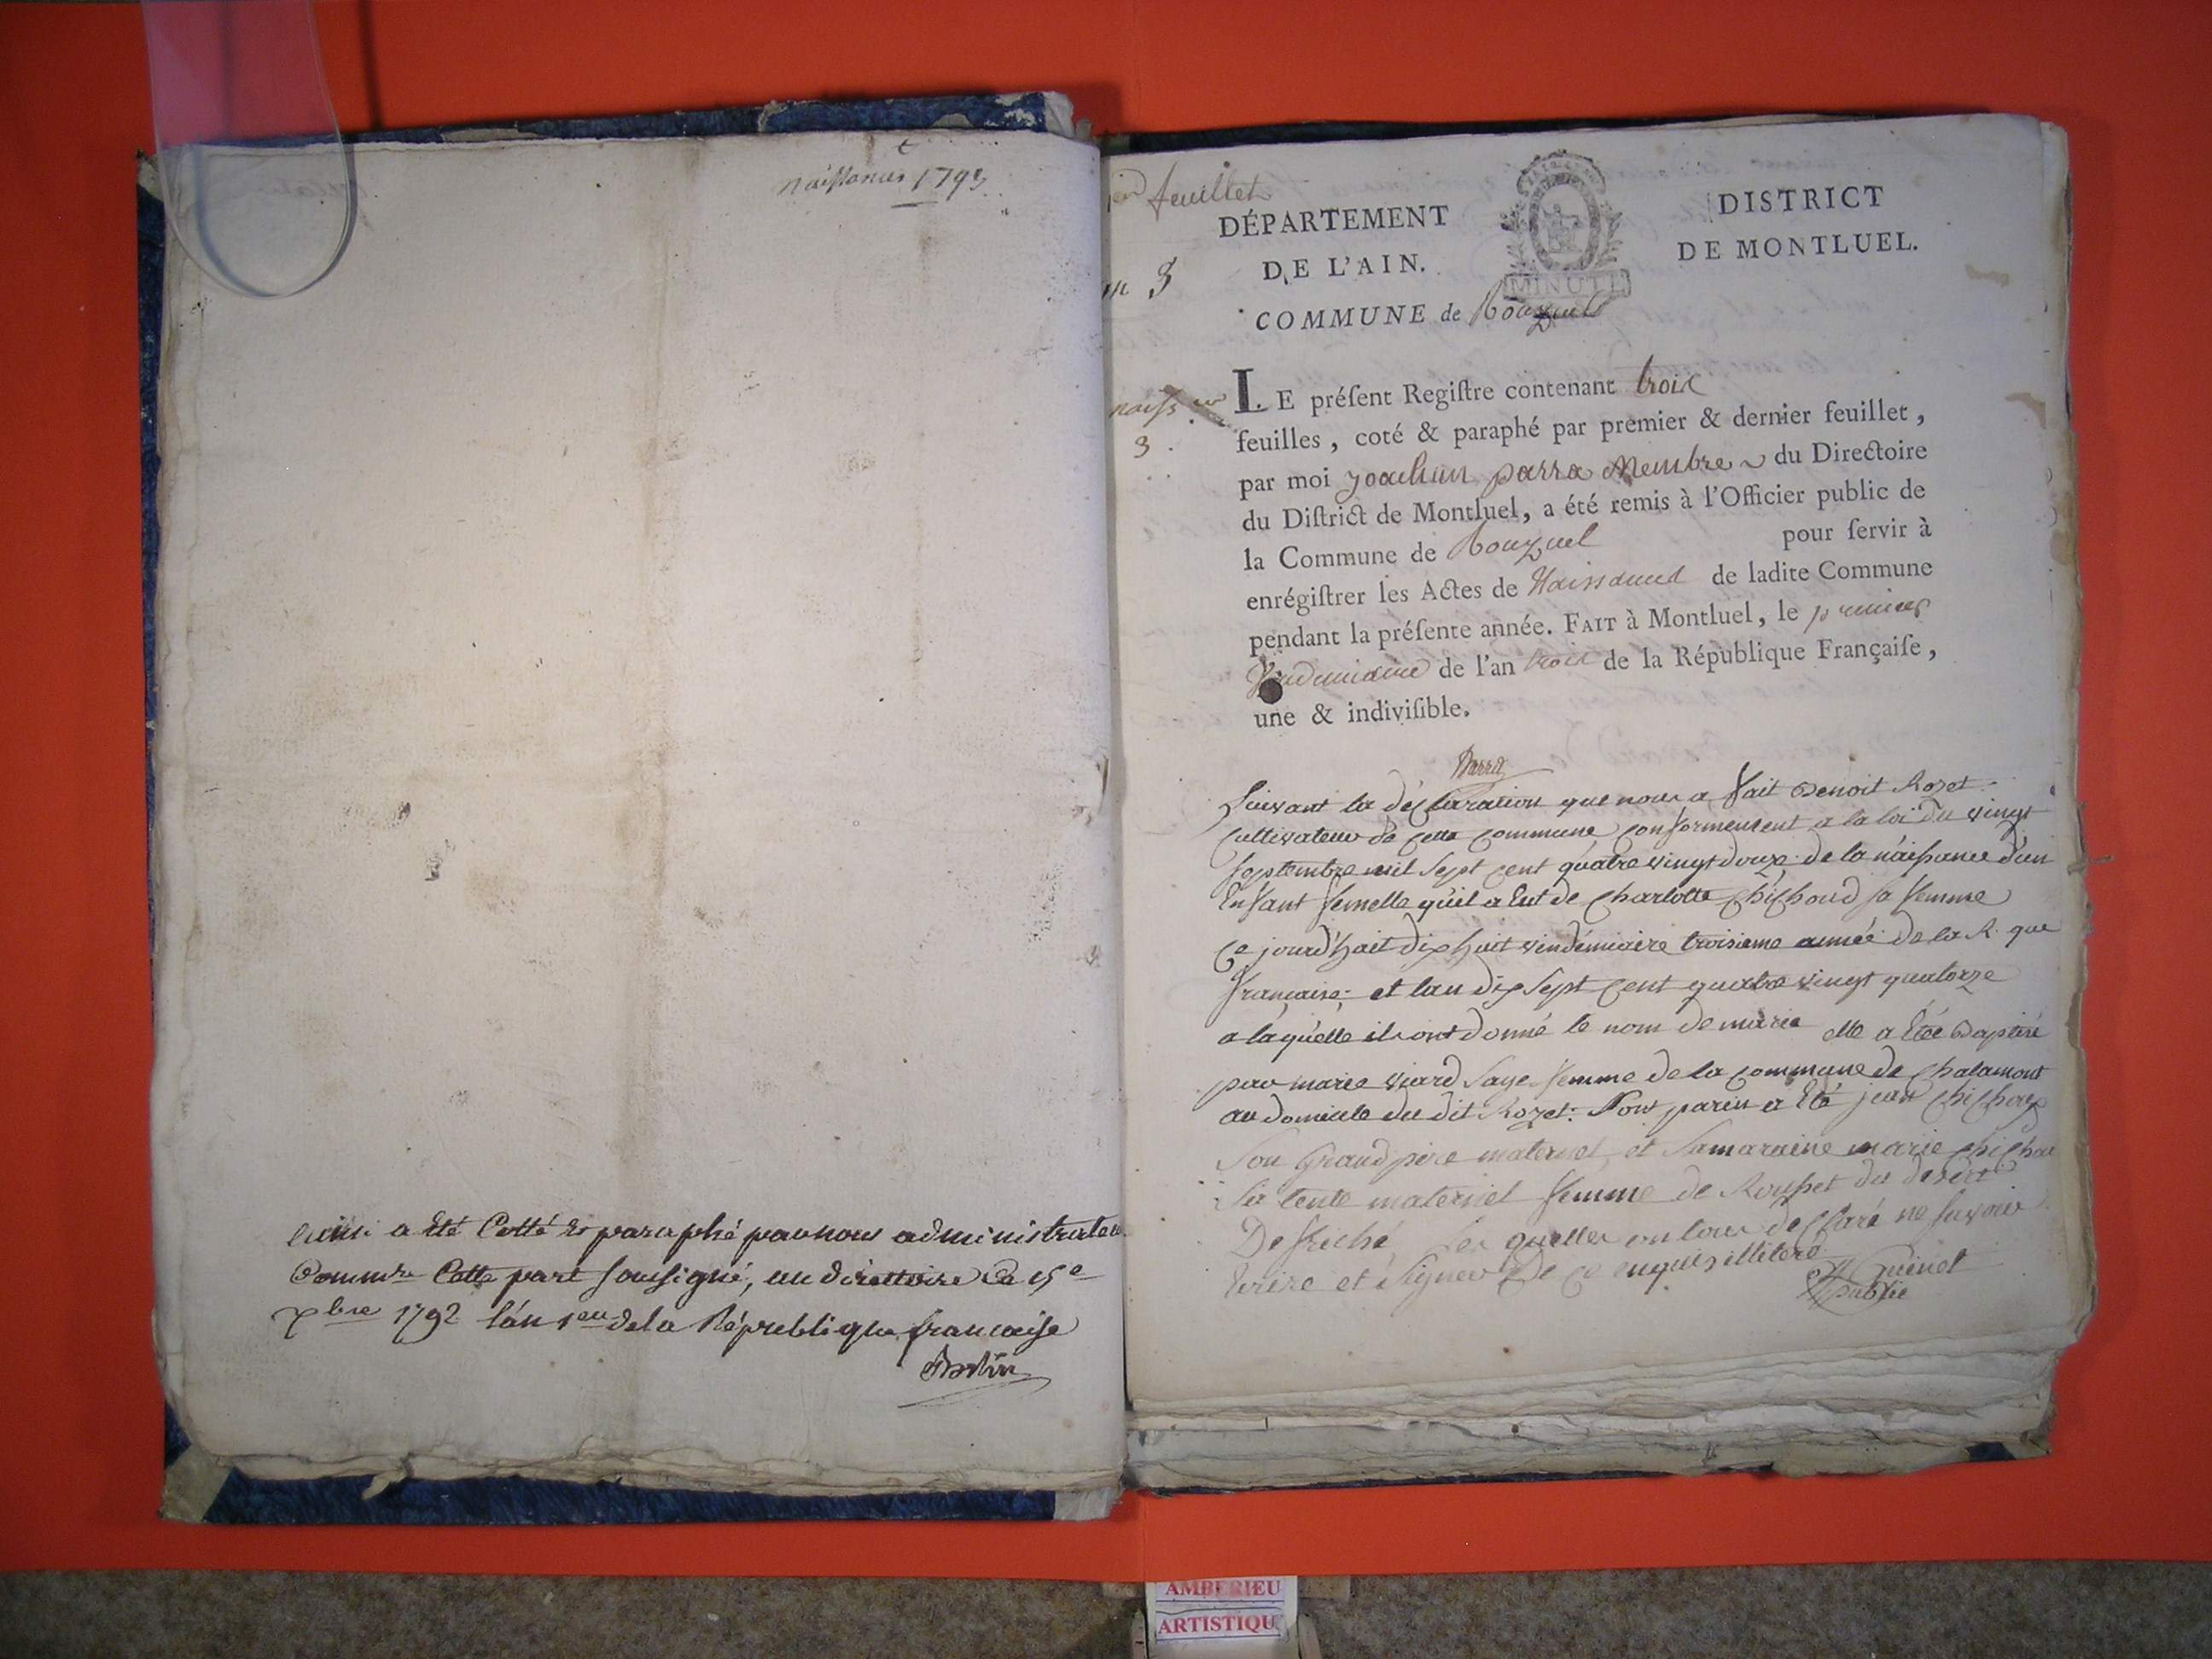 naissances 1793
ainsi a été Cotté et paraphé par nous administrateur
Comm.re Cette part soussigné, au directoire Ce 15e
xbre 1792 l'an 1er de la République française
1er feuillet
DÉPARTEMENT
DE L'AIN.
MINUTE
DISTRICT
DE MONTLUEL.
an 3
COMMUNE de Rouzuel
naiss
3
LE préſent Regiſtre contenant trois
feuilles, coté & paraphé par premier & dernier feuillet,
par moi Joachim parra Membre du Directoire
du Diſtrict de Montluel, a été remis à l'Officier public de
la Commune de Rouzuel pour ſervir à
enrégiſtrer les Actes de Naissances de ladite Commune
pendant la préſente année. FAIT à Montluel, le premier
Vendemiaire de l'an trois de la République Françaiſe,
une & indiviſible.
Parra
Suivant la déclaration que nous a fait Benoit Rozet
Cultivateur de cette commune conformement a la loi du vingt
septembre mil sept cent quatre vingt douze de la naissance d'un
Enfant femelle qu'il a Eut de Charlotte Chichoud sa femme
Ce jourd'huit dix huit vindémiaire troisieme année de la R. que
française; et lan dix sept cent quatre vingt quatorze
a laquelle ils ont donné le nom de marie elle a Etée Baptisé
par marie viard Sage femme de la commune de Chalamont
au domicile du dit Rozet: Sont parin a Eté jean Chichoux
Son Grand pere maternel, et Samaraine marie Chichou
Sa tente maternel femme de Rousset du desert
De friché, Les quelles on tous de Claré ne savoir
Ecrire et Signer De Ce enquis illitere
Guinet
public
AMBERIEU
ARTISTIQU